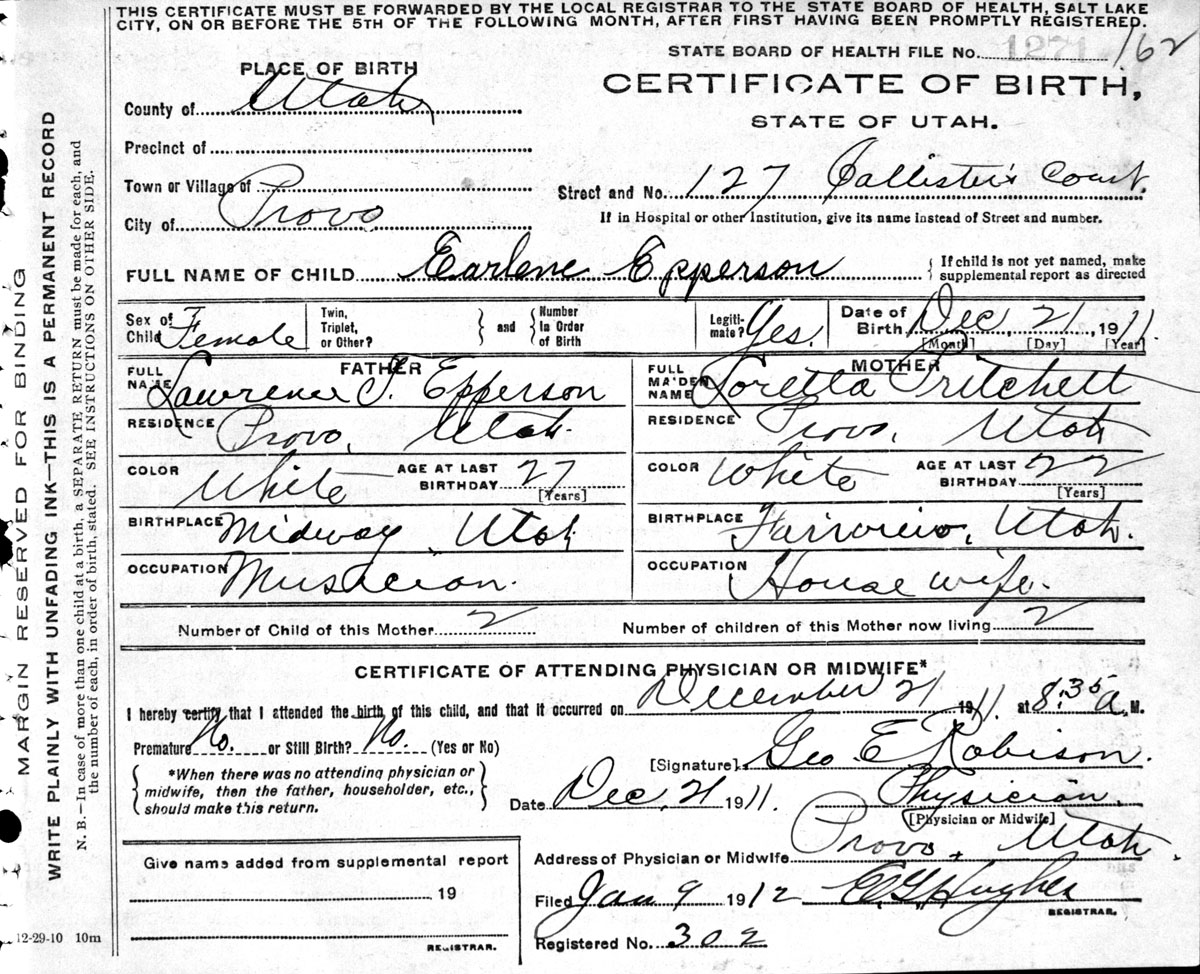 THIS CERTIFICATE MUST BE FORWARDED BY THE LOCAL REGISTRAR TO THE STATE BOARD OF HEALTH, SALT LAKE
CITY, ON OR BEFORE THE 5TH OF THE FOLLOWING MONTH, AFTER FIRST HAVING BEEN PROMPTLY REGISTERED.
STATE BOARD OF HEALTH FILE No. 1271 162
PLACE OF BIRTH
CERTIFICATE OF BIRTH,
STATE OF UTAH.
County of Utah
Precinct of
Town or Village of
City of Provo
Street and No. 127 Callister's Court.
If in Hospital or other Institution, give its name instead of Street and number.
FULL NAME OF CHILD Earlene Epperson { If child is not yet named, make
supplemental report as directed
Sex of Child Female
Twin, Triplet, or Other? } and { Number In Order of Birth
Legitimate? Yes.
Date of Birth Dec 21, 1911.
[Month] [Day] [Year]
FATHER
FULL NAME Lawrence T. Epperson
RESIDENCE Provo, Utah.
COLOR White AGE AT LAST BIRTHDAY 27 [Years]
BIRTHPLACE Midway, Utah
OCCUPATION Musician.
MOTHER
FULL MAIDEN NAME Loretta Pritchett
RESIDENCE Provo, Utah
COLOR White AGE AT LAST BIRTHDAY 22 [Years]
BIRTHPLACE Fairview, Utah.
OCCUPATION House wife.
Number of Child of this Mother 2 Number of children of this Mother now living 2
CERTIFICATE OF ATTENDING PHYSICIAN OR MIDWIFE*
I hereby certify that I attended the birth of this child, and that it occurred on December 21 1911. at 8:35 a. M.
Premature No. or Still Birth? No. (Yes or No)
{ *When there was no attending physician or
midwife, then the father, householder, etc.,
should make this return. }
[Signature] Geo E Robison.
Date Dec. 21 1911. Physician.
[Physician or Midwife]
Address of Physician or Midwife Provo, Utah.
Give name added from supplemental report
19
REGISTRAR.
Filed Jan 9 1912 E G Hughes
REGISTRAR.
Registered No. 302
12-29-10 10m
MARGIN RESERVED FOR BINDING
WRITE PLAINLY WITH UNFADING INK—THIS IS A PERMANENT RECORD
N. B.—In case of more than one child at a birth, a SEPARATE RETURN must be made for each, and
the number of each, in order of birth, stated. SEE INSTRUCTIONS ON OTHER SIDE.